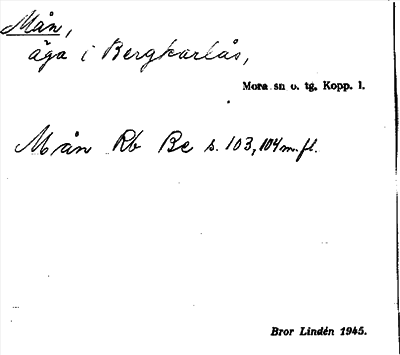 Mån,
äga i Bergkarlås,
Mora sn o. tg, Kopp. l.
Mån Rb Be s. 103, 104 m.fl.
Bror Lindén 1945.